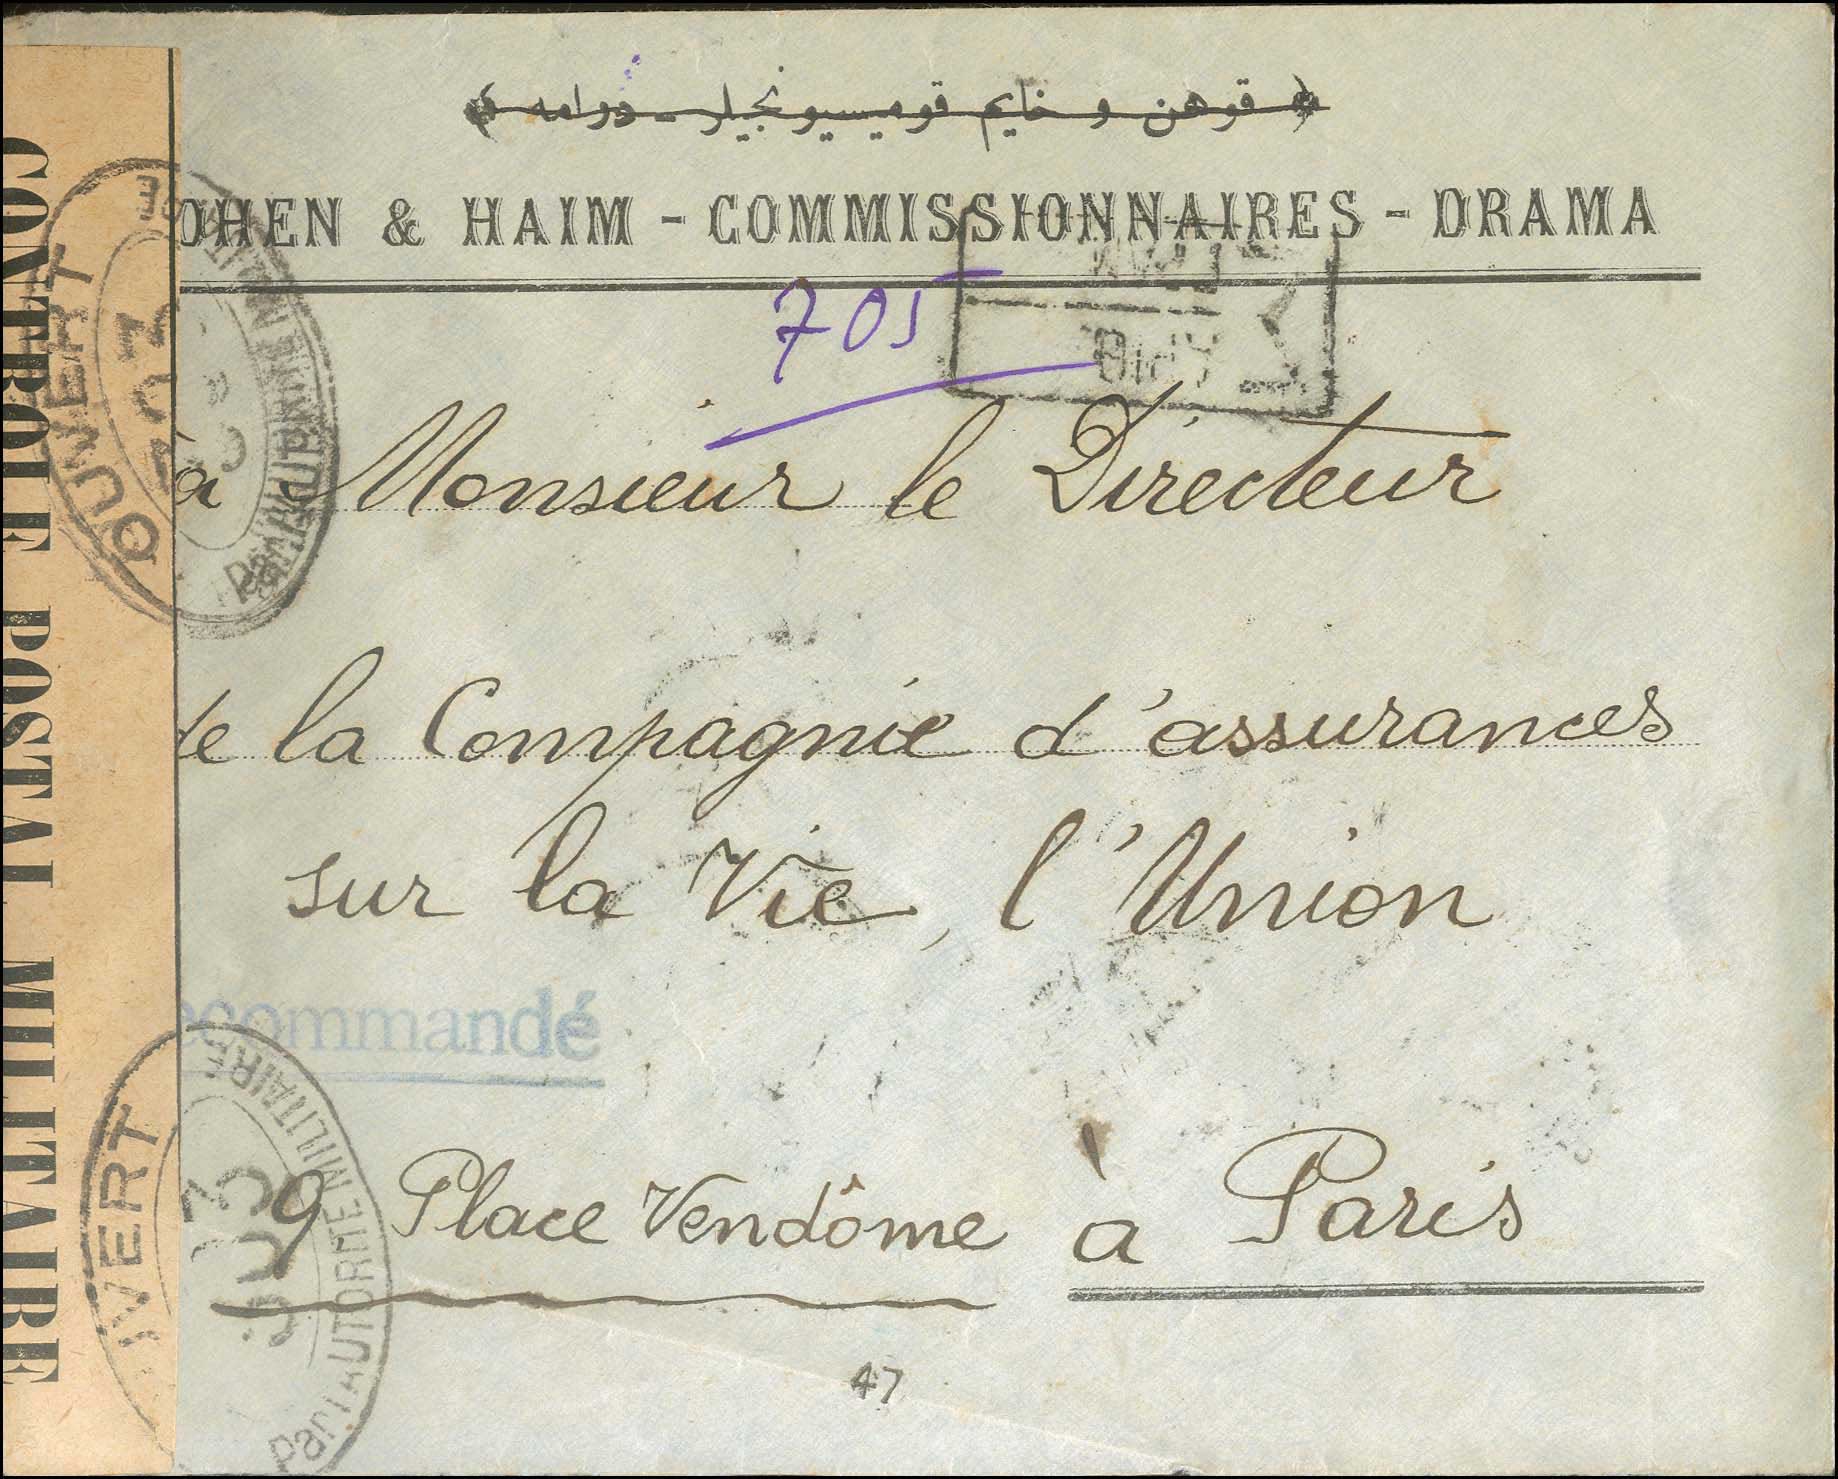 قوهن و خايم قوميسيونجيلر - درامه
OHEN & HAIM - COMMISSIONNAIRES - DRAMA
705
à Monsieur le Directeur
de la Compagnie d'assurances
sur la Vie, l'Union
ecommandé
9 Place Vendôme à Paris
47
CONTROLE POSTAL MILITAIRE
OUVERT
Par
OUVERT
503
Par l'AUTORITÉ MILITAIRE